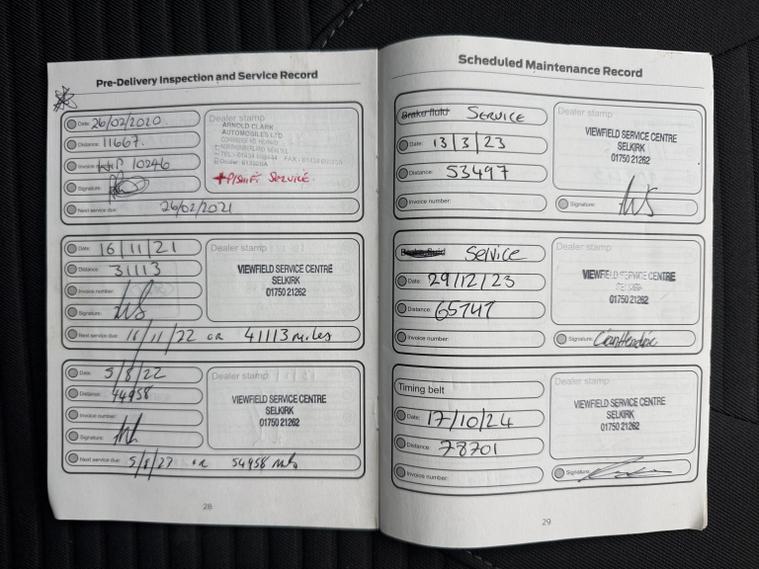 Pre-Delivery Inspection and Service Record
Date: 26/02/2020
Distance: 11667.
Invoice 10246
Signature:
Next service due: 26/02/2021
Dealer stamp
ARNOLD CLARK
AUTOMOBILES LTD
+ SERVICE.
Date: 16/11/21
Distance: 31113
Invoice number:
Signature:
Next service due: 16/11/22 OR 41113 miles
Dealer stamp
VIEWFIELD SERVICE CENTRE
SELKIRK
01750 21262
Date: 5/8/22
Distance: 44958
Invoice number:
Signature:
Next service due: 5/8/23 or 54958 mls
Dealer stamp
VIEWFIELD SERVICE CENTRE
SELKIRK
01750 21262
28
Scheduled Maintenance Record
Brake fluid SERVICE
Date: 13/3/23
Distance: 53497
Invoice number:
Dealer stamp
VIEWFIELD SERVICE CENTRE
SELKIRK
01750 21262
Signature:
Brake fluid Service
Date: 29/12/23
Distance: 65747
Invoice number:
Dealer stamp
VIEWFIELD SERVICE CENTRE
SELKIRK
01750 21262
Signature:
Timing belt
Date: 17/10/24
Distance: 78701
Invoice number:
Dealer stamp
VIEWFIELD SERVICE CENTRE
SELKIRK
01750 21262
Signature:
29